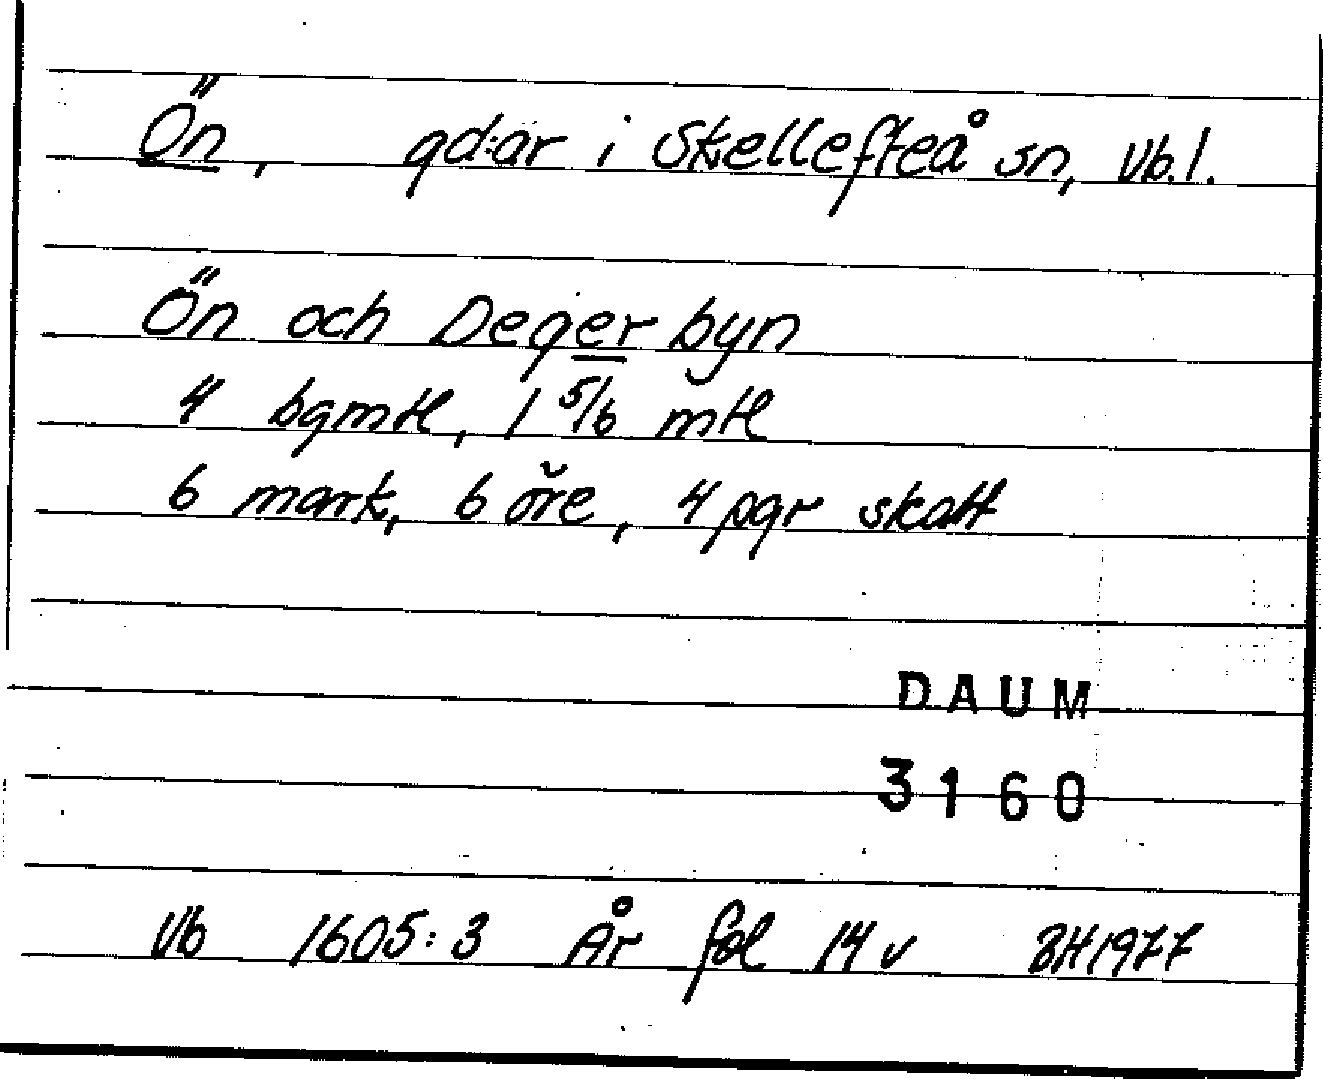 Ön, gd:ar i Skellefteå sn, Vb.l.
Ön och Degerbyn
4 bgmtl, 1 5/6 mtl
6 mark, 6 öre, 4 pgr skatt
DAUM
3160
Vb 1605:3 År fol 14 v BH 1977